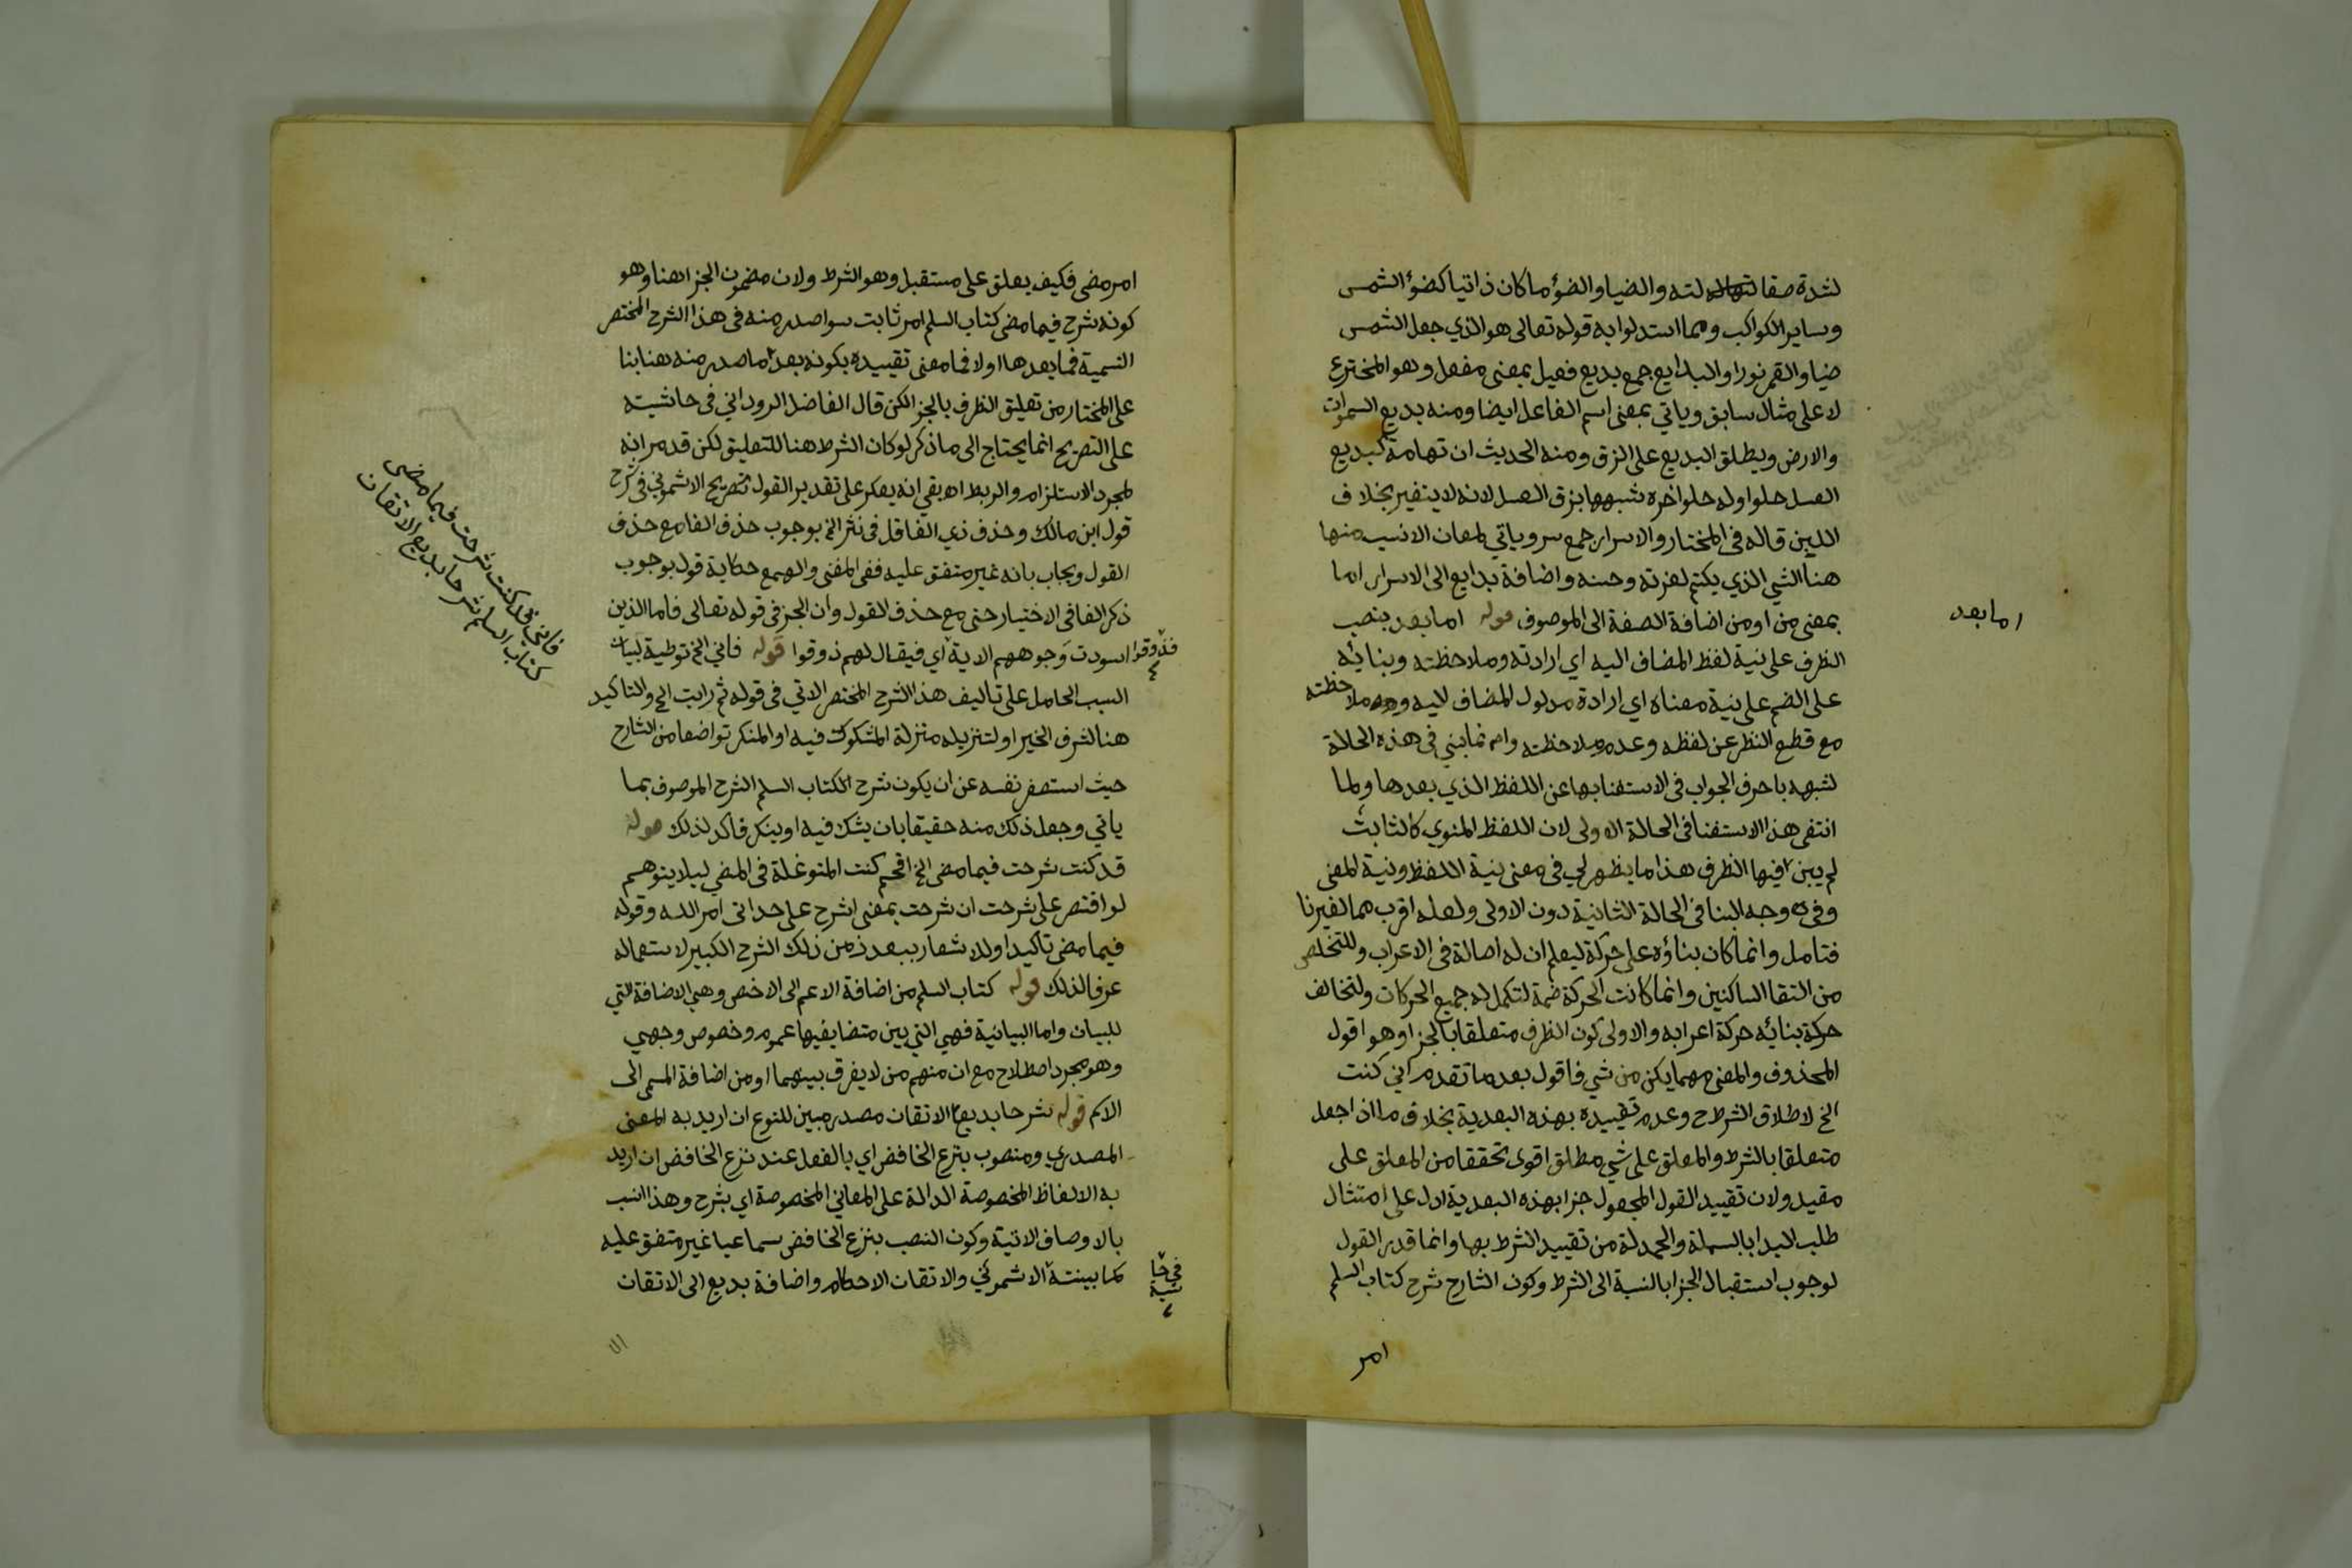 لشدة صقالته والضيا والضؤ ما كان ذاتيا كضؤ الشمس
وساير الكواكب ومما استدلوا به قوله تعالى هو الذي جعل الشمس
ضيا والقمر نورا والبدايع جمع بديع فعيل بمعنى مفعل وهو المخترع
لا على مثال سابق وياتي بمعنى اسم الفاعل ايضا ومنه بديع السموات
والارض ويطلق البديع على الزق ومنه الحديث ان تهامة كبديع
العسل حلو اوله حلو اخره شبهها بزق العسل لانه لا يتغير بخلاف
اللبن قاله في المختار والاسرار جمع سر وياتي لمعان الانسب منها
هنا الشي الذي يكتم لعزته وحسنه واضافة بدايع الى الاسرار اما
بمعنى من او من اضافة الصفة الى الموصوف قوله اما بعد بنصب
اما بعد
الظرف على نية لفظ المضاف اليه اي ارادته وملاحظته وبنائه
على الضم على نية معناه اي ارادة مدلول المضاف ليه وملاحظته
مع قطع النظر عن لفظه وعدم ملاحظته وانما بني في هذه الحالة
لشبهه باحرف الجواب في الاستغنا بها عن اللفظ الذي بعدها ولما
انتفى هذا الاستغنا في الحالة الاولى لان اللفظ المنوي كالثابت
لم يبن فيها الظرف هذا ما يظهر لي في معنى نية اللفظ ونية المعنى
وفي وجه البنا في الحالة الثانية دون الاولى ولعله اقرب مما لغيرنا
فتامل وانما كان بناؤه على حركة ليعلم ان له اصالة في الاعراب وللتخلص
من التقا الساكنين وانما كانت الحركة ضمة لتكمل له جميع الحركات ولتخالف
حركة بنائه حركة اعرابه والاولى كون الظرف متعلقا بالجزا وهو اقول
المحذوف والمعنى مهما يكن من شي فاقول بعد ما تقدم اني كنت
الخ لاطلاق الشرط ح وعدم تقييده بهذه البعدية بخلاف ما اذا جعل
متعلقا بالشرط والمعلق على شي مطلق اقوى تحققا من المعلق على
مقيد ولان تقييد القول المجعول جزا بهذه البعدية ادل على امتثال
طلب البدا بالبسملة والحمدلة من تقييد الشرط بها وانما قدر القول
لوجوب استقبال الجزا بالنسبة الى الشرط وكون الشارح شرح كتاب السلم
امر
امر مضى فكيف يعلق على مستقبل وهو الشرط ولان مضمون الجزا هنا وهو
كونه شرح فيما مضى كتاب السلم امر ثابت سوا صدر منه في هذا الشرح المختصر
التسمية فما بعدها اولا فما معنى تقييده بكونه بعد ما صدر منه هنا بنا
على المختار من تعليق الظرف بالجزا لكن قال الفاضل الروداني في حاشيته
على التصريح انما يحتاج الى ما ذكر لو كان الشرط هنا للتعليق لكن قد مر انه
لمجرد الاستلزام والربط اه بقي انه يعكر على تقدير القول تصريح الاشموني في شرح
قول ابن مالك وحذف ذي الفا قل في نثر الخ بوجوب حذف الفا مع حذف
القول ويجاب بانه غير متفق عليه ففي المغنى والهمع حكاية قول بوجوب
ذكر الفا في الاختيار حتى مع حذف القول وان الجزا في قوله تعالى فاما الذين
اسودت وجوههم الاية اي فيقال لهم ذوقوا قوله فاني الخ توطية لبيان
فذوقوا
السبب الحامل على تاليف هذا الشرح المختصر الاتي في قوله ثم رايت الخ والتاكيد
هنا لشرف الخبر او لتنزيله منزلة المشكوك فيه او المنكر تواضعا من الشارح
حيث استصغر نفسه عن ان يكون شرح الكتاب السلم الشرح الموصوف بما
ياتي وجعل ذلك منه حقيقا بان يشك فيه او ينكر فاكد لذلك قوله
قد كنت شرحت فيما مضى الخ اقحم كنت المتوغلة في المضي ليلا يتوهم
لو اقتصر على شرحت ان شرحت بمعنى اشرح على حد اتى امر الله وقوله
فيما مضى تاكيد او للاشعار ببعد زمن ذلك الشرح الكبير لاستعماله
عرفا لذلك قوله كتاب السلم من اضافة الاعم الى الاخص وهي الاضافة التي
للبيان واما البيانية فهي التي بين متضايفيها عموم وخصوص وجهي
وهو مجرد اصطلاح مع ان منهم من لا يفرق بينهما او من اضافة المسمى الى
الاسم قوله شرحا بديع الاتقان مصدر مبين للنوع ان اريد به المعنى
المصدري ومنصوب بنزع الخافض اي بالفعل عند نزع الخافض ان اريد
به الالفاظ المخصوصة الدالة على المعاني المخصوصة اي بشرح وهذا انسب
بالاوصاف الاتية وكون النصب بنزع الخافض سماعيا غير متفق عليه
كما بينته الاشموني والاتقان الاحكام واضافة بديع الى الاتقان
في حا
شية
فاني قد كنت شرحت فيما مضى
كتاب السلم شرحا بديع الاتقان